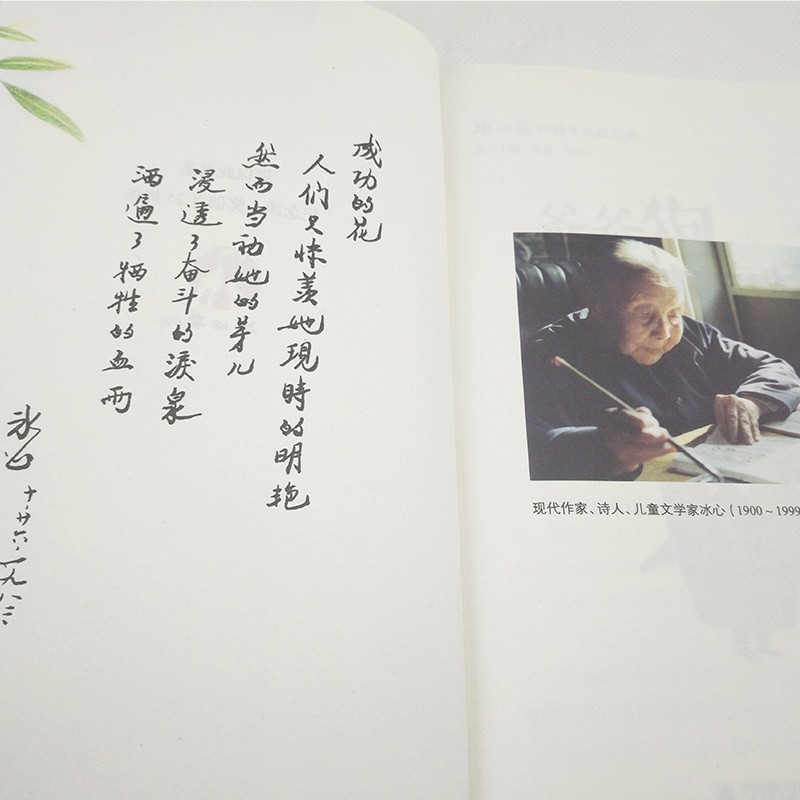 成功的花
人们只惊羡她现時的明艳
然而当初她的芽儿
浸透了奋斗的淚泉
洒遍了牺牲的血雨
冰心
十·廿六·一九八三·
现代作家、诗人、儿童文学家冰心(1900~1999